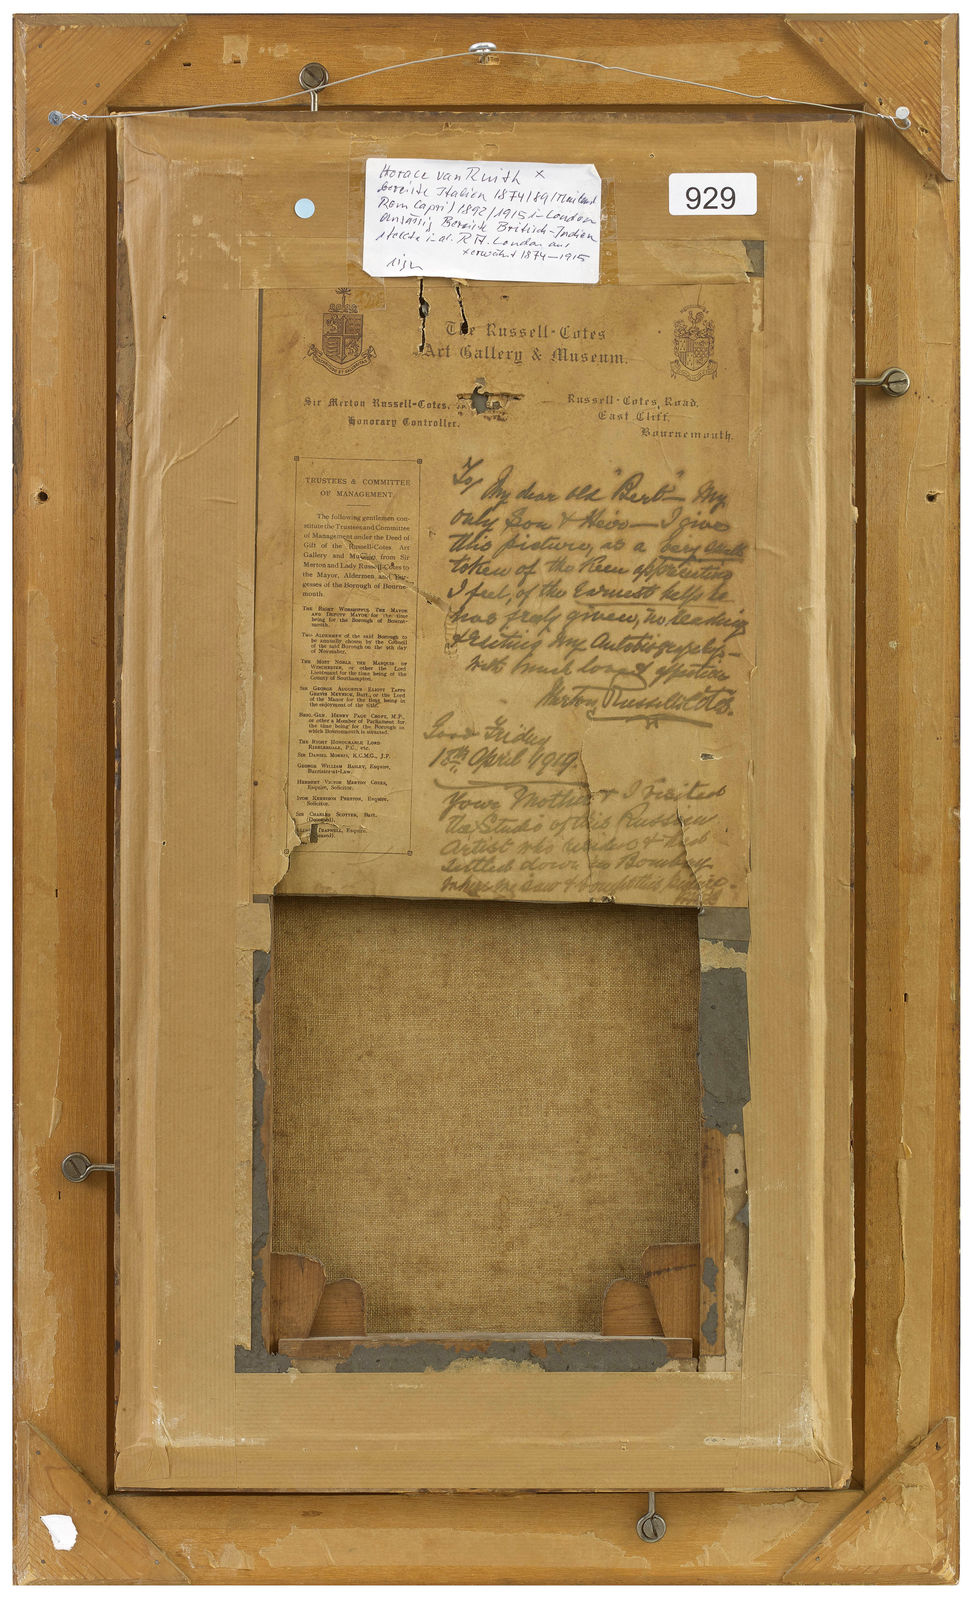 Horace van Ruith x
bereiste Italien 1874/89/Mailand
Rom Capri/1892/1915 in London
ansässig Bereiste Britisch-Indien
stellte i. d. R.A. London aus
xerwähnt 1874-1915
sign
929
The Russell-Cotes
Art Gallery & Museum.
Sir Merton Russell-Cotes,
Honorary Controller.
Russell-Cotes Road,
East Cliff,
Bournemouth.
TRUSTEES & COMMITTEE
OF MANAGEMENT
The following gentlemen con-
stitute the Trustees and Committee
of Management under the Deed of
Gift of the Russell-Cotes Art
Gallery and Museum from Sir
Merton and Lady Russell-Cotes to
the Mayor, Aldermen and Bur-
gesses of the Borough of Bourne-
mouth.
THE RIGHT WORSHIPFUL THE MAYOR
AND DEPUTY MAYOR for the time
being for the Borough of Bourne-
mouth.
TWO ALDERMEN of the said Borough to
be annually chosen by the Council
of the said Borough on the 9th day
of November.
THE MOST NOBLE THE MARQUIS OF
WINCHESTER, or other the Lord
Lieutenant for the time being of the
County of Southampton.
SIR GEORGE AUGUSTUS ELIOTT TAPPS
GERVIS MEYRICK, Bart., or the Lord
of the Manor for the time being in
the enjoyment of the title.
BRIG.-GEN. HENRY PAGE CROFT, M.P.,
or other a Member of Parliament for
the time being for the Borough in
which Bournemouth is situated.
THE RIGHT HONOURABLE LORD
RIBBLESDALE, P.C., etc.
SIR DANIEL MORRIS, K.C.M.G., J.P.
GEORGE WILLIAM BAILEY, Esquire,
Barrister-at-Law.
HERBERT VICTOR MERTON COTES,
Esquire, Solicitor.
IVOR KERRISON PRESTON, Esquire,
Solicitor.
SIR CHARLES SCOTTER, Bart.
(Deceased).
TRAPNELL, Esquire
To/ My dear old "Bert" My
only Son & Heir — I give
this picture, as a very small
token of the keen appreciation
I feel, of the Earnest help he
has freely given, in reading
& Editing My Autobiography —
With much love & affection
Merton Russell Cotes.
Good Friday
18th April 1919.
Your Mother & I visited
the Studio of this Russian
Artist who resided & had
settled down in Bombay
where we saw & bought this picture.